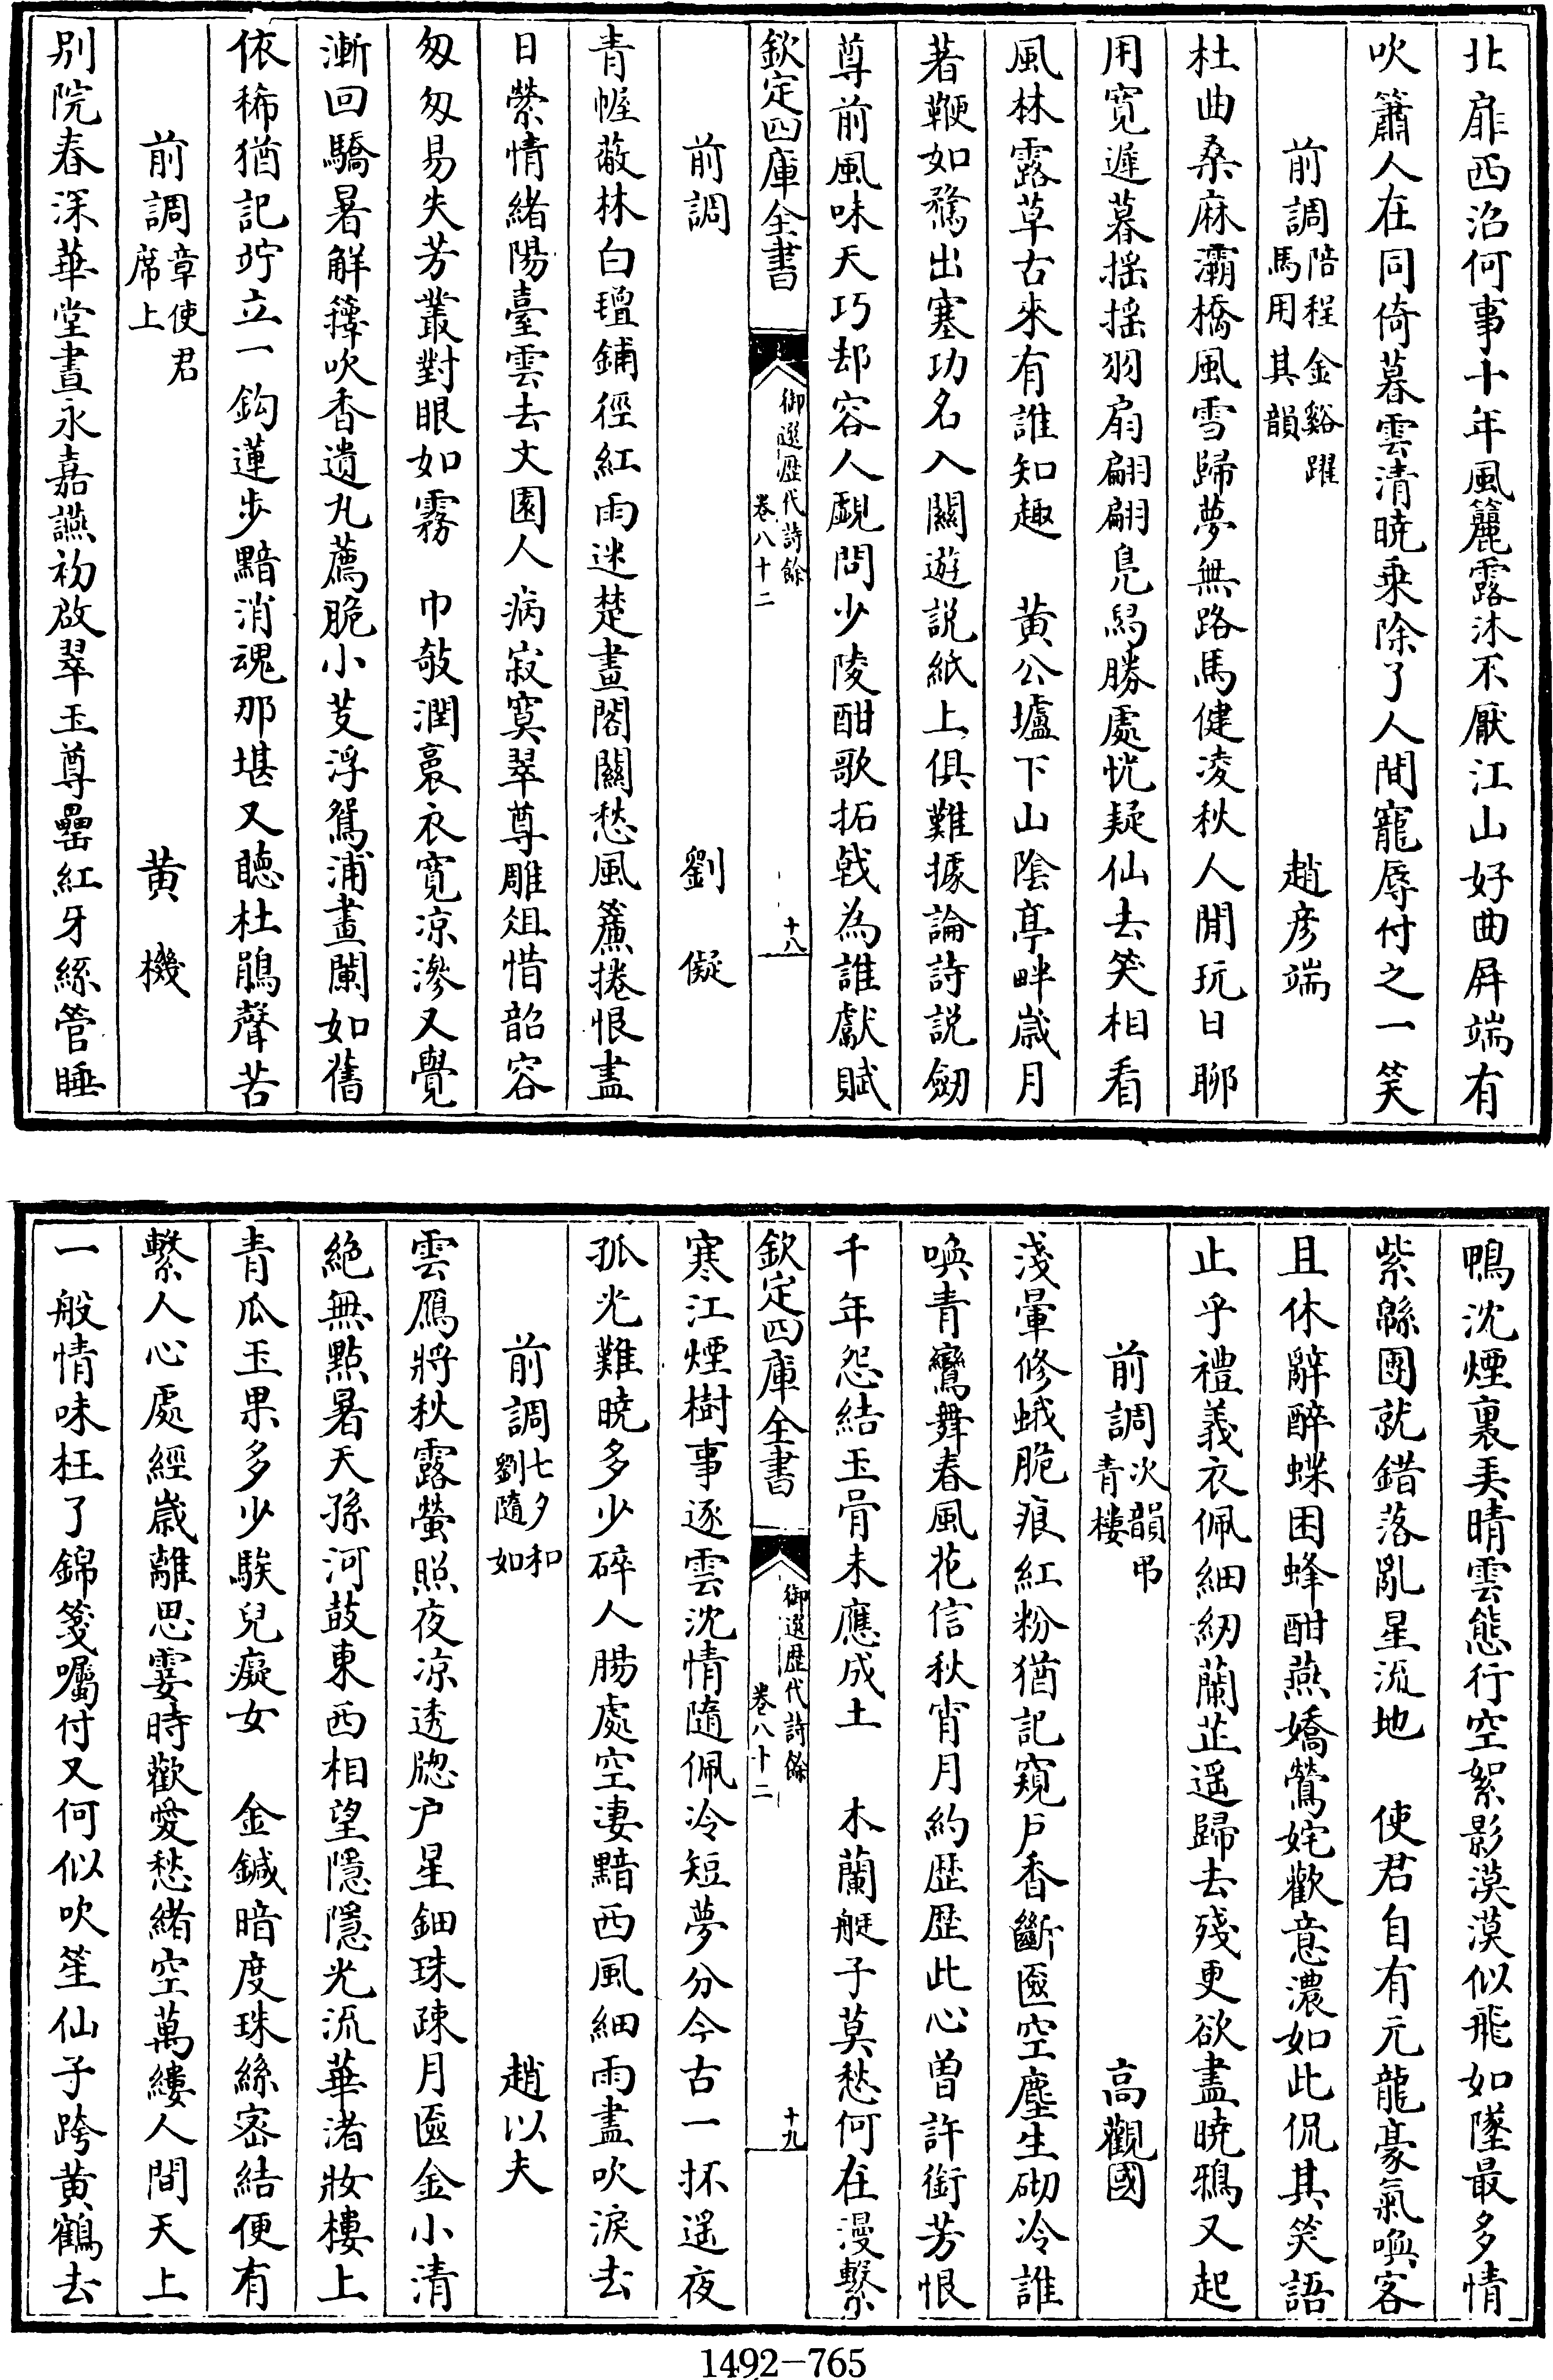 北扉西沼何事十年風麗露沐不厭江山好曲屏端有
吹簫人在同倚暮雲清曉乗除了人間寵辱付之一笑
前調陪程金谿躍馬用其韻　趙彦端
杜曲桑麻灞橋風雪歸夢無路馬健凌秋人閒玩日聊
用寛遲暮揺揺羽扇翩翩鳬舄勝處恍疑仙去笑相看
風林露草古來有誰知趣　黄公壚下山陰亭畔歲月
著鞭如騖出塞功名入關遊説紙上俱難據論詩説劒
尊前風味天巧却容人覷問少陵酣歌拓戟為誰獻賦
欽定四庫全書　御選歴代詩餘卷八十二　十八
前調　劉儗
青幄蔽林白氊鋪徑紅雨迷楚畫閣關愁風簾捲恨盡
日縈情緒陽臺雲去文園人病寂寞翠尊雕俎惜韶容
匆匆易失芳叢對眼如霧　巾欹潤裛衣寛凉滲又覺
漸回驕暑解籜吹香遺丸薦脆小芰浮鴛浦畫闌如舊
依稀猶記竚立一鈎蓮步黯消魂那堪又聽杜鵑聲苦
前調章使君席上　黄機
别院春深華堂晝永嘉讌初啟翠玉尊罍紅牙絲管睡
鴨沈煙裏美晴雲態行空絮影漠漠似飛如墜最多情
紫緜團就錯落亂星流地　使君自有元龍豪氣喚客
且休辭醉蝶困蜂酣燕嬌鶯姹歡意濃如此侃其笑語
止乎禮義衣佩細紉蘭芷遥歸去殘更欲盡曉鴉又起
前調次韻弔青樓　高觀國
淺暈修蛾脆痕紅粉猶記窺戸香斷匳空塵生砌冷誰
喚青鸞舞春風花信秋宵月約歴歴此心曽許銜芳恨
千年怨結玉骨未應成土　木蘭艇子莫愁何在漫繫
欽定四庫全書　御選歴代詩餘卷八十二　十九
寒江煙樹事逐雲沈情隨佩冷短夢分今古一抔遥夜
孤光難曉多少碎人腸處空凄黯西風細雨盡吹淚去
前調七夕和劉隨如　趙以夫
雲鴈將秋露螢照夜凉透牎户星鈿珠疎月匳金小清
絶無點暑天孫河鼓東西相望隱隱光流華渚妝樓上
青瓜玉果多少騃兒癡女　金鍼暗度珠絲宻結便有
繫人心處經歲離思霎時歡愛愁緒空萬縷人間天上
一般情味枉了錦箋囑付又何似吹笙仙子跨黄鶴去
1492-765